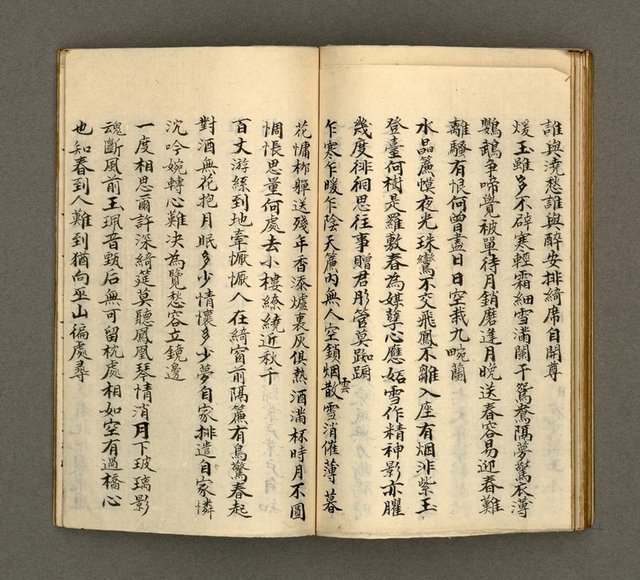 誰與澆愁誰與醉安排綺席自開尊
煖玉雖多不辟寒輕霜細雪滿闌干鴛鴦隔夢驚衣薄
鸚鵡爭啼覺被單待月銷磨逢月晚送春容易迎春難
離騷有恨何曾盡日日空栽九畹蘭
水晶簾幙夜光珠鸞不交飛鳳不雛入座有烟非紫玉
登臺何樹是羅敷春為媒孽心應妬雪作精神影亦臞
幾度徘徊思往事贈君彤管莫踟蹰
乍寒乍暖乍陰天簾內無人空鎖烟雲散雪消催薄暮
花慵柳嚲送殘年香添爐裏灰俱熱酒滿杯時月不圓
惆悵思量何處去小樓絲繞近秋千
百丈游絲到地牽懨懨人在綺窗前隔簾有鳥驚春起
對酒無花抱月眠多少情懷多少夢自家排遣自家憐
沉吟婉轉心難決為覽愁容立鏡邊
一度相思爾許深綺筵莫聽鳳凰琴情消月下玻璃影
魂斷風前玉珮音甄后無可留枕處相如空有過橋心
也知春到人難到猶向巫山徧處尋